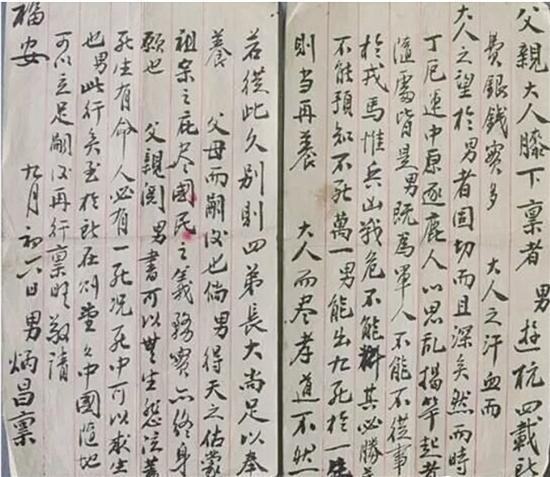 父親大人膝下稟者 男遊杭四載耗
費銀錢實多 大人之汗血而
大人之望於男者固切而且深矣然而時
丁厄運中原逐鹿人心思亂揭竿起者
滙處皆是男既為軍人不能不從事
於戎馬惟兵凶戰危不能料其必勝
不能預知不死萬一男能出九死於一生
則當再養 大人而尽孝道不然
若從此久別則四弟長大尚足以奉
養 父母而嗣後也倘男得天之佑蒙
祖宗之庇尽國民之義務實亦終身
願也 父親閱男書可以無生怨泣蓋
死生有命人必有一死況死中可以求生
也男此行矣至於 在何堂々中國隨地
可以立足嗣後再行稟明敬請
福安 九月初六日男炳昌稟